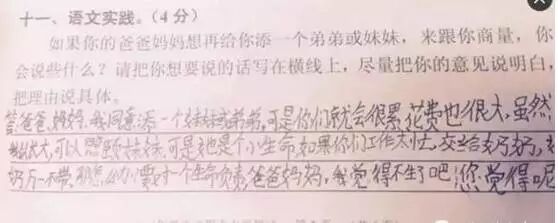 十一、语文实践。(4分)
如果你的爸爸妈妈想再给你添一个弟弟或妹妹，来跟你商量，你
会说些什么？请把你想要说的话写在横线上，尽量把你的意见说明白，
把理由说具体。
答:爸爸,妈妈,我同意添一个妹妹或弟弟,可是你们就会很累,花费也很大,虽然
我长大,可以照顾妹妹,可是她是个小生命,如果你们工作太忙,交给奶奶,
奶万一不带,要对一个生命负责,爸爸妈妈,我觉得不生了吧!您觉得呢